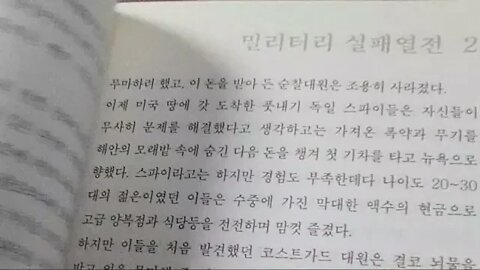 밀리터리 실패열전 2
무마하려 했고, 이 돈을 받아 든 순찰대원은 조용히 사라졌다.
이제 미국 땅에 갓 도착한 풋내기 독일 스파이들은 자신들이
무사히 문제를 해결했다고 생각하고는 가져온 폭약과 무기를
해안의 모래밭 속에 숨긴 다음 돈을 챙겨 첫 기차를 타고 뉴욕으로
향했다. 스파이라고는 하지만 경험도 부족한데다 나이도 20~30
대의 젊은이였던 이들은 수중에 가진 막대한 액수의 현금으로
고급 양복점과 식당등을 전전하며 맘껏 즐겼다.
하지만 이들을 처음 발견했던 코스트가드 대원은 결코 뇌물을
받고 일을 무마해